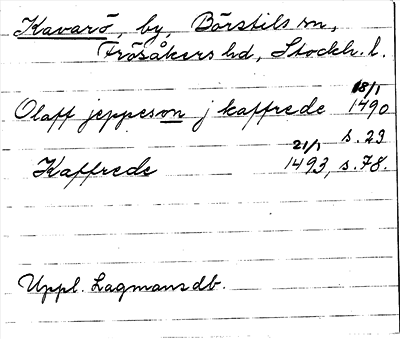 Kavarö, by, Börstils sn,
Frösåkers hd, Stockh. l.
18/1
Olaff jeppeson j kaffrede 1490
s. 29
21/1
Kaffrede 1493, s. 78.
Uppl. Lagmansdb.